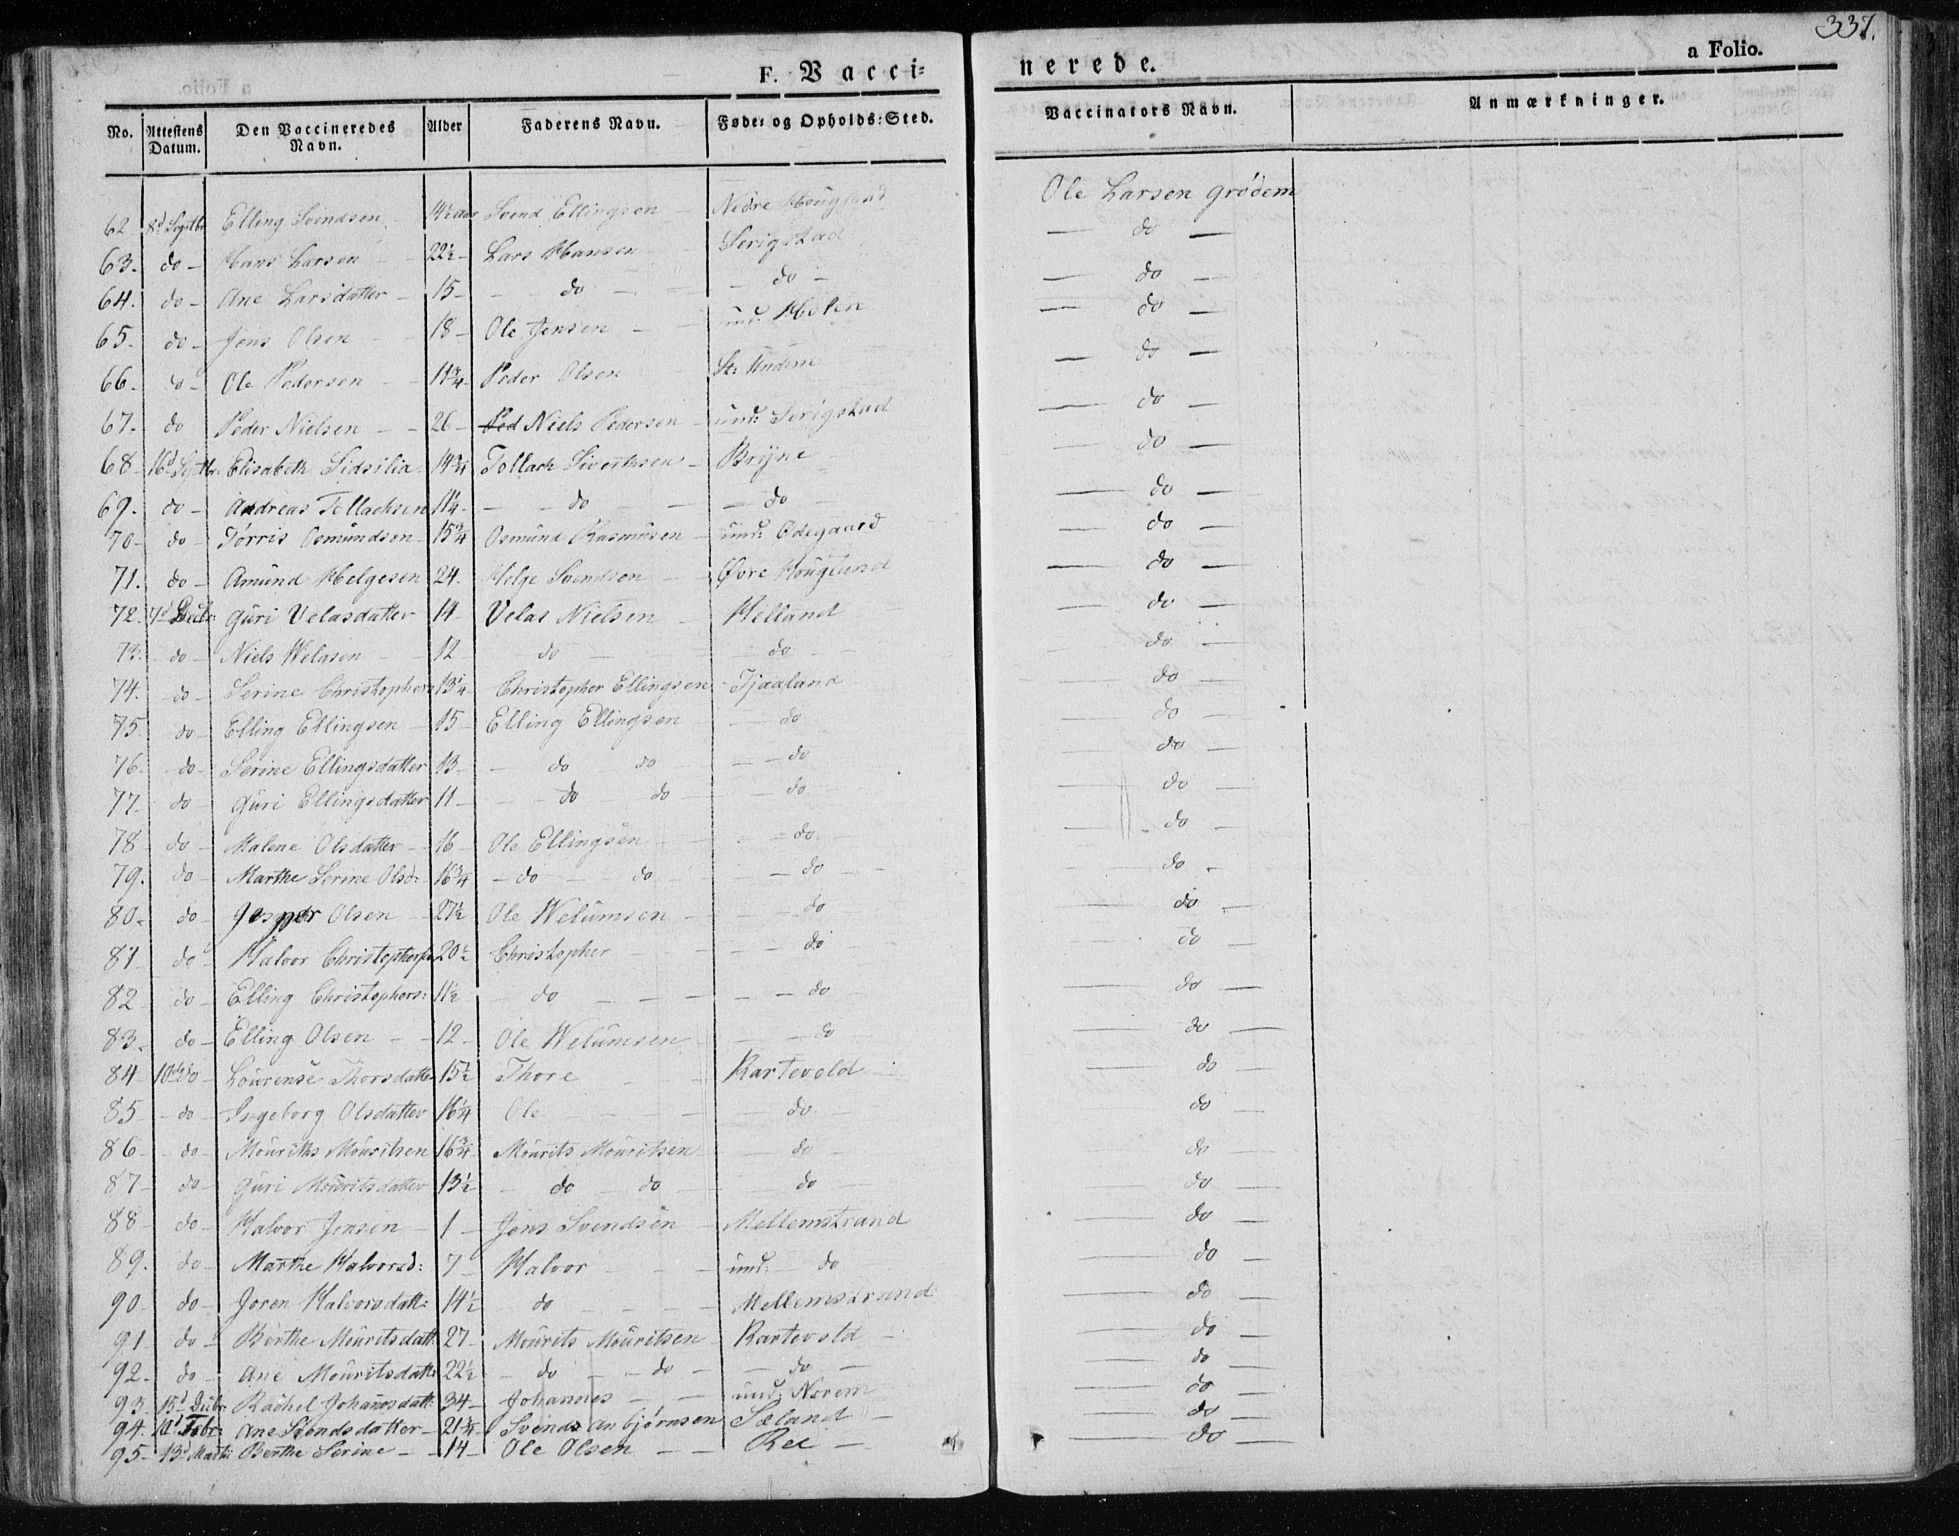 337.
F. Vacci= nerede. a Folio.
No. Attestens Datum. Den Vaccineredes Navn. Alder Faderens Navn. Føde= og Opholds=Sted. Vaccinators Navn. Anmærkninger.
62. 8d Septbr Elling Svendsen 14½ aar Svend Ellingsen Nedre Houglund Ole Larsen Grödem
63. do Hans Larsen 22½ Lars Hansen Serigstad do
64. do Ane Larsdatter 15 do do do
65. do Jens Olsen 18 Ole Jensen und: Holen do
66. do Ole Pedersen 11¾ Peder Olsen St: Undem do
67. do Peder Nielsen 26 Ped Niels Pedersen und: Serigstad do
68 16d Septbr. Elisabeth Sidsilia 14¾ Tollach Sivertsen Bryne do
69. do Andreas Tollachsen 11¼ do do do
70 do Törris Osmundsen 15¾ Osmund Rasmusen und: Ødegaard do
71. do Amund Helgesen 24 Helge Svendsen Øvre Houglund do
72. 7d Decbr: Guri Velasdatter 14 Velas Nielsen Helland do
73. do Niels Welasen 12 do do do
74. do Serine Christophers 13¼ Christopher Ellingsen Tjaaland do
75 do Elling Ellingsen 15 Elling Ellingsen do do
76. do Serine Ellingsdatter 13 do do do do
77. do Guri Ellingsdatter 11 do do do do
78 do Malene Olsdatter 16 Ole Ellingsen do do
79. do Marthe Serine Olsd: 16¾ do do do do
80. do Jesper Olsen 27½ Ole Welumsen do do
81 do Halvor Christophers 20½ Christopher do do
82 do Elling Christophers: 11½ do do do
83. do Elling Olsen 12 Ole Welumsen do do
84 10d do Lourense Thorsdatter 15½ Thore Kartevold do
85 do Ingeborg Olsdatter 16¼ Ole do do
86 do Mourits Mouritsen 16¾ Mourits Mouritsen do do
87 do Guri Mouritsdatter 13½ do do do do
88 do Halvor Jensen 1 Jens Svendsen Mellemstrand do
89. do Marthe Halvorsd: 7 Halvor und: do do
90 do Joren Halvorsdatt: 14½ do Mellemstrand do
91 do Berthe Mouritsdatt. 27 Mourits Mouritsen Kartevold do
92. do Ane Mouritsdatt: 22½ do do do do
93. 15d Decbr Rachel Johanesdatt: 34 Johannes und: Nærem do
94. 10d Febr: Ane Svendsdatter 21¼ Svend Anbjørnsen Sæland do
95 13d Marti Berthe Serine 14 Ole Olsen Ree do